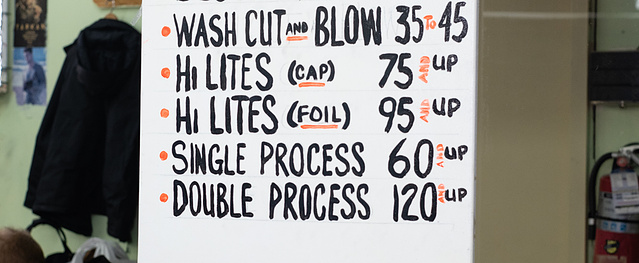 WASH CUT AND BLOW 35 TO 45
Hi LITES (CAP) 75 AND UP
Hi LITES (FOIL) 95 AND UP
SINGLE PROCESS 60 AND UP
DOUBLE PROCESS 120 AND UP